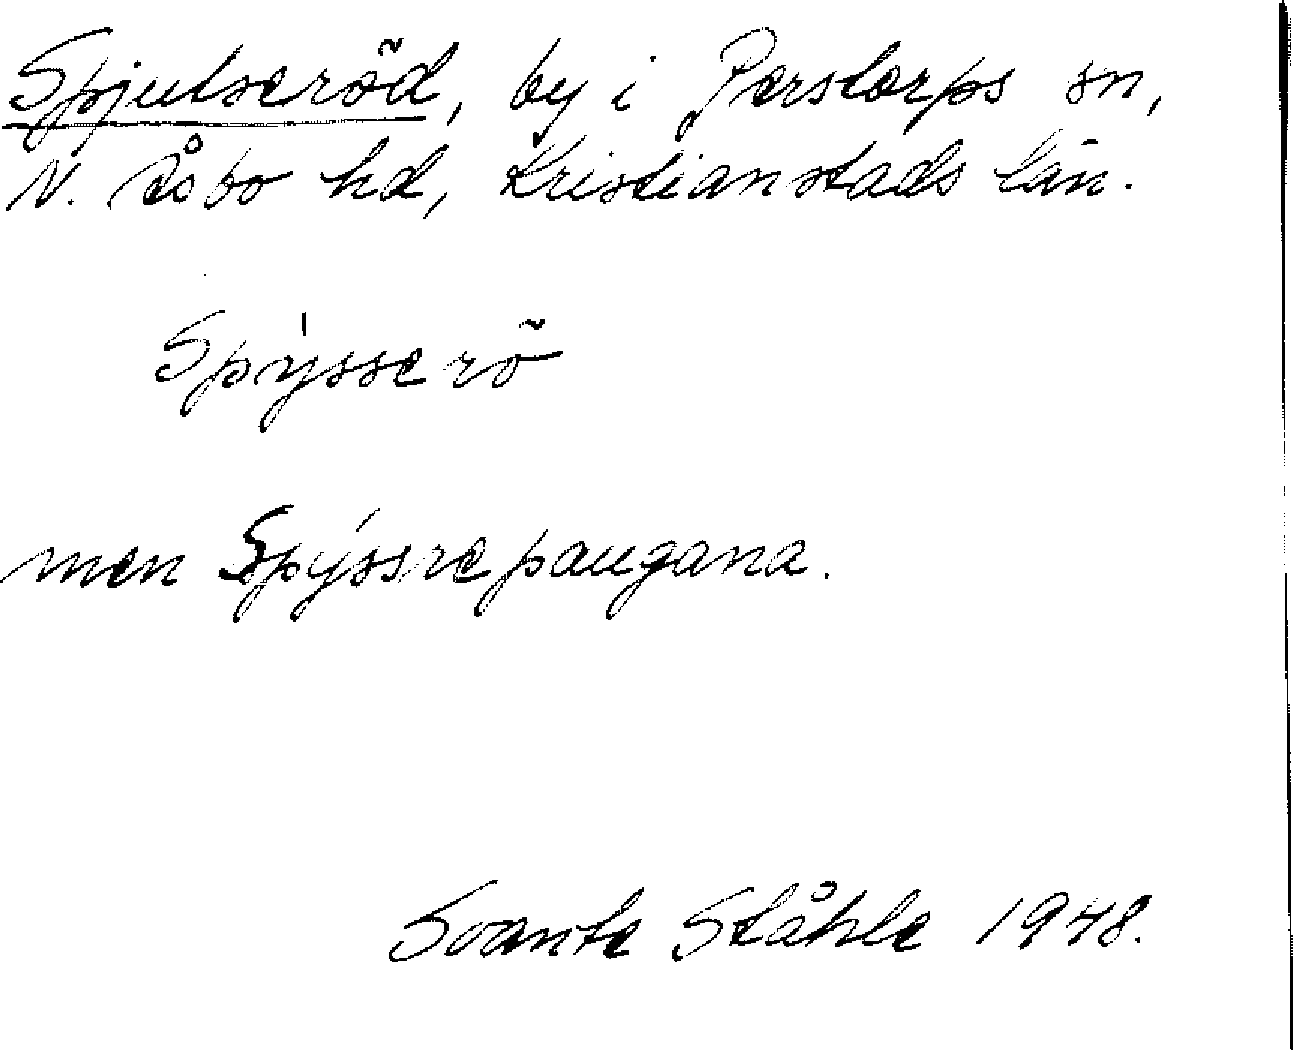 Spjutseröd, by i Perstorps sn,
N. Åsbo hd, Kristianstads län.
Spýsserö
men Spýssrepaugana.
Svante Ståhle 1948.